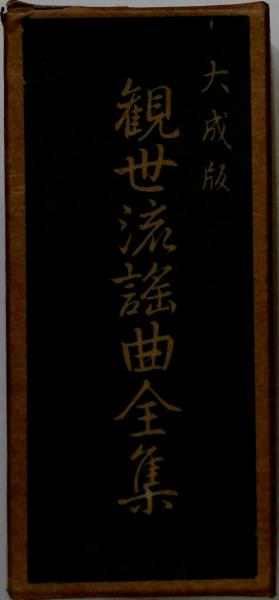 大成版
観世流謡曲全集